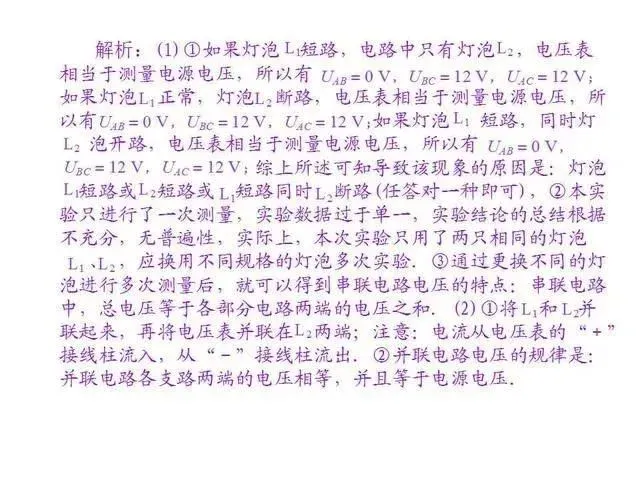 解析：(1) ①如果灯泡 L₁短路，电路中只有灯泡L₂，电压表
相当于测量电源电压，所以有 U_AB = 0 V，U_BC = 12 V，U_AC = 12 V；
如果灯泡L₁正常，灯泡L₂断路，电压表相当于测量电源电压，所
以有U_AB = 0 V，U_BC = 12 V，U_AC = 12 V;如果灯泡L₁ 短路，同时灯
L₂ 泡开路，电压表相当于测量电源电压，所以有 U_AB = 0 V，
U_BC = 12 V，U_AC = 12 V；综上所述可知导致该现象的原因是：灯泡
L₁短路或L₂短路或L₁短路同时L₂断路(任答对一种即可)，②本实
验只进行了一次测量，实验数据过于单一，实验结论的总结根据
不充分，无普遍性，实际上，本次实验只用了两只相同的灯泡
L₁、L₂，应换用不同规格的灯泡多次实验．③通过更换不同的灯
泡进行多次测量后，就可以得到串联电路电压的特点：串联电路
中，总电压等于各部分电路两端的电压之和．(2) ①将L₁和L₂并
联起来，再将电压表并联在L₂两端；注意：电流从电压表的“＋”
接线柱流入，从“－”接线柱流出．②并联电路电压的规律是：
并联电路各支路两端的电压相等，并且等于电源电压．